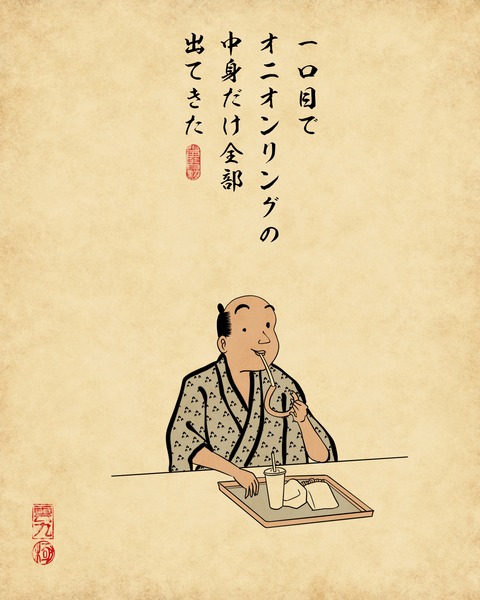 一口目で
オニオンリングの
中身だけ全部
出てきた